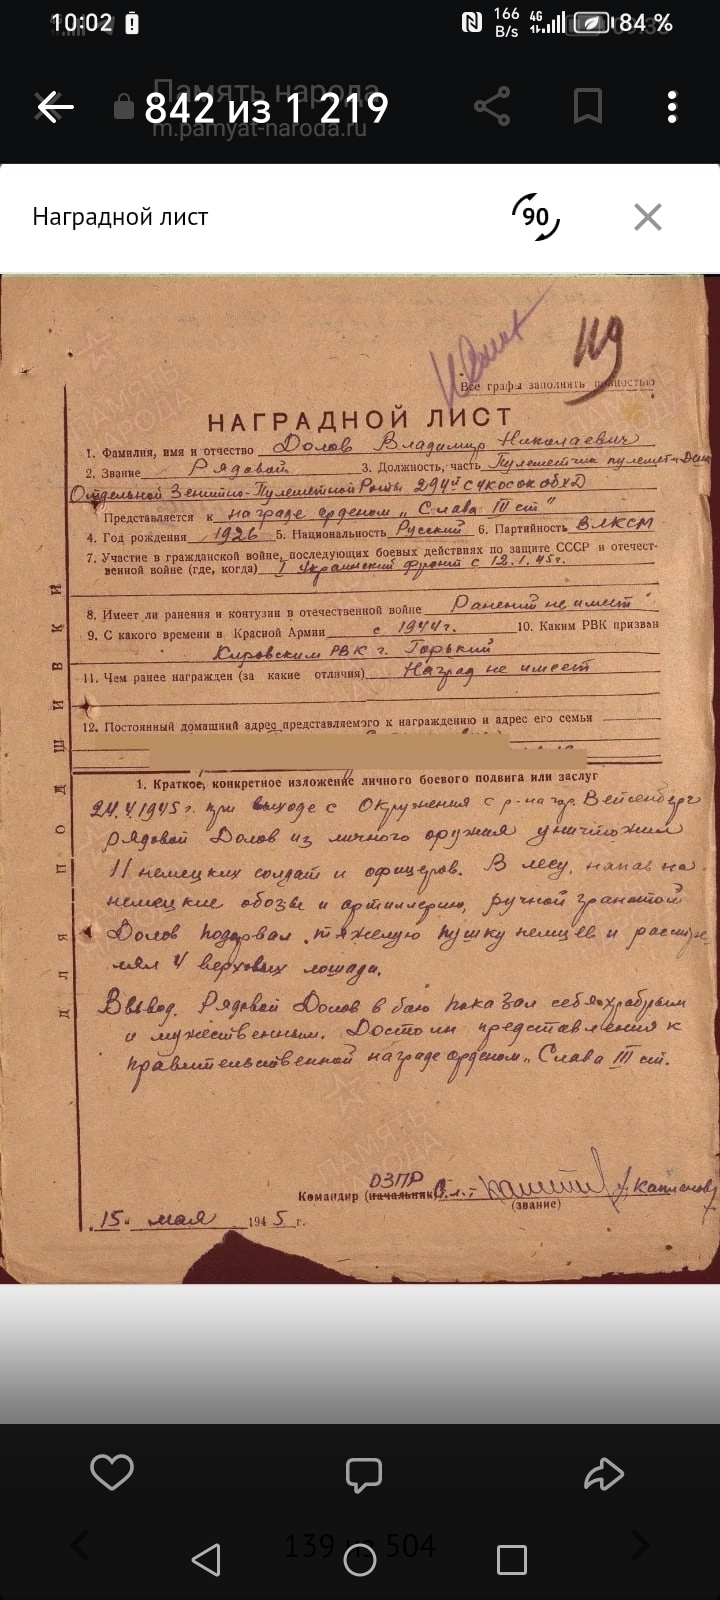 10:02
166 B/s
4G
84 %
Память народа
842 из 1 219
m.pamyat-naroda.ru
Наградной лист
90
119
Все графы заполнять полностью
НАГРАДНОЙ ЛИСТ
1. Фамилия, имя и отчество Долов Владимир Николаевич
2. Звание Рядовой 3. Должность, часть Пулеметчик пулемета
Отдельной Зенитно-Пулеметной Роты 294й
Представляется к награде орденом „Слава III ст"
4. Год рождения 1926 5. Национальность Русский 6. Партийность ВЛКСМ
7. Участие в гражданской войне, последующих боевых действиях по защите СССР и отечест-
венной войне (где, когда) I Украинский фронт с 12.1.45г.
8. Имеет ли ранения и контузии в отечественной войне Ранений не имеет
9. С какого времени в Красной Армии с 1944г. 10. Каким РВК призван
Кировским РВК г. Горький
11. Чем ранее награжден (за какие отличия) Наград не имеет
12. Постоянный домашний адрес представляемого к награждению и адрес его семьи
1. Краткое, конкретное изложение личного боевого подвига или заслуг
24.4.1945г. при выходе с Окружения с р-на гор. Вейсенберг
рядовой Долов из личного оружия уничтожил
11 немецких солдат и офицеров. В лесу, напав на
немецкие обозы и артиллерию, ручной гранатой
Долов подорвал тяжелую пушку немцев и расстре-
лял 4 верховых лошади.
Вывод. Рядовой Долов в бою показал себя храбрым
и мужественным. Достоин представления к
правительственной награде орденом „Слава III ст.
ДЛЯ ПОДШИВКИ
ОЗПР
Командир (начальник) Ст. л-т Капланов
(звание)
„15" мая 1945 г.
139 из 504